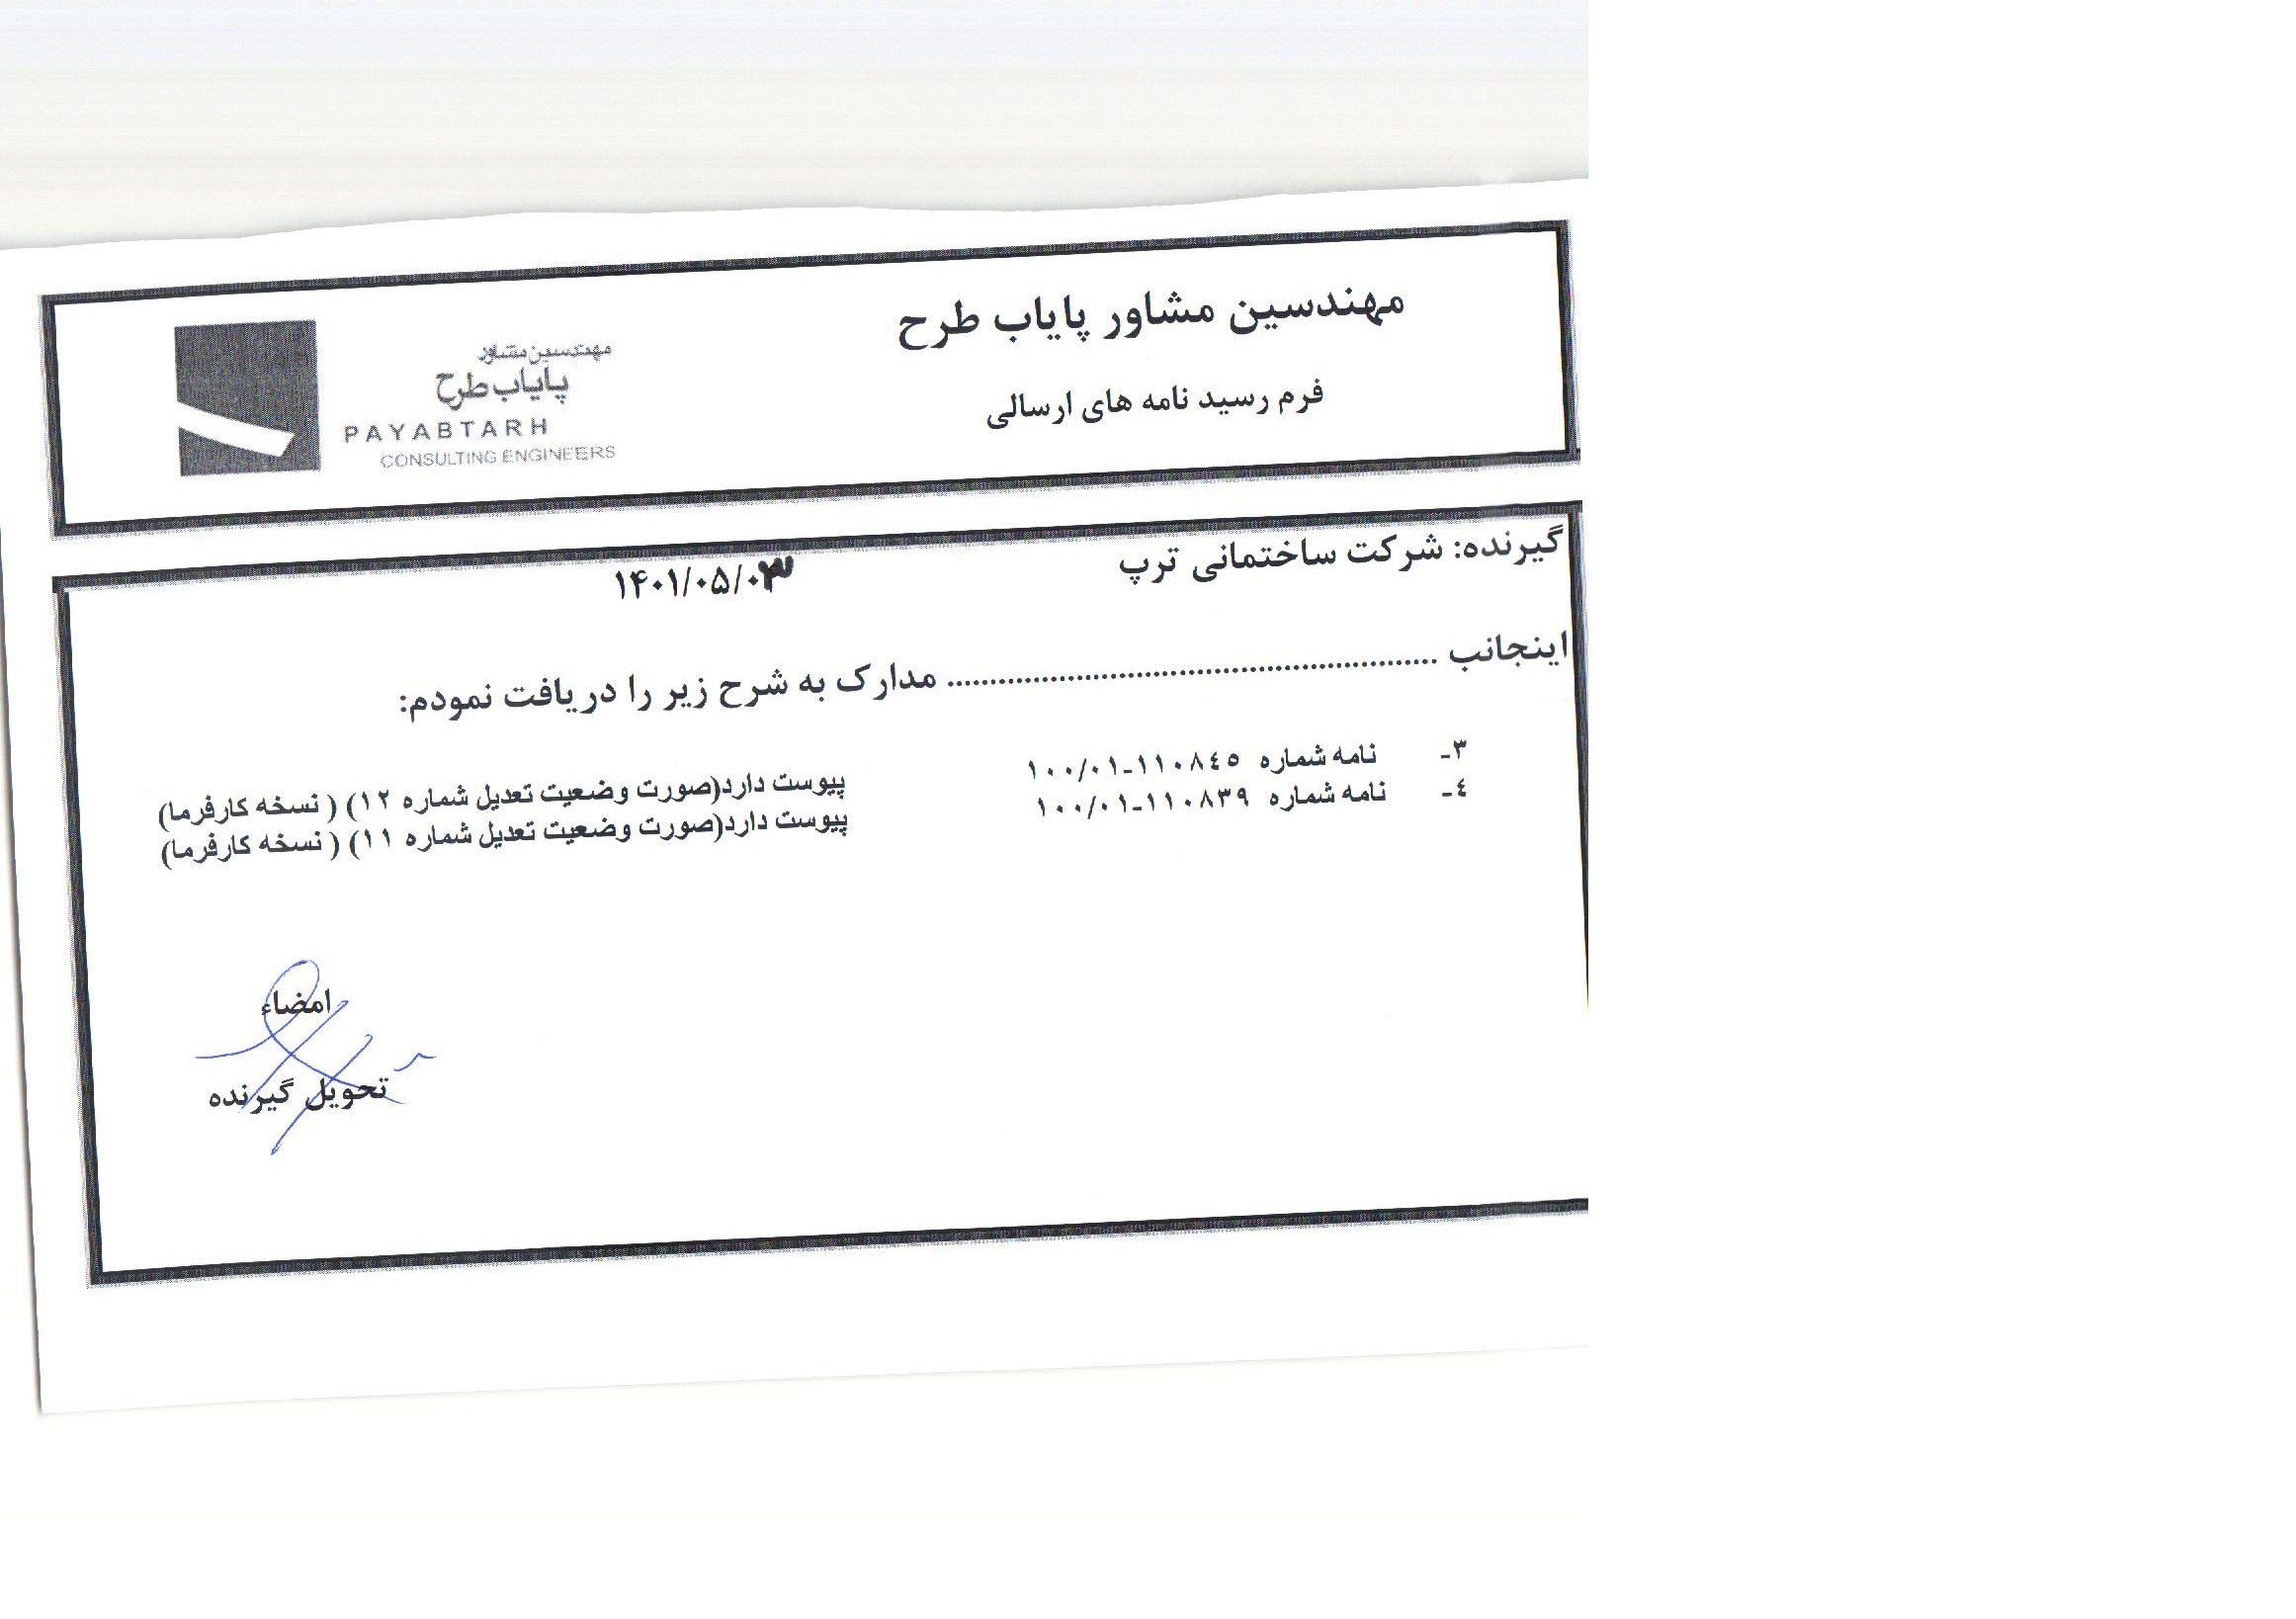 مهندسین مشاور پایاب طرح
فرم رسید نامه های ارسالی
مهندسین مشاور
پایاب طرح
PAYABTARH
CONSULTING ENGINEERS
گیرنده: شرکت ساختمانی ترپ
۱۴۰۱/۰۵/۰۳
اینجانب ........................................................ مدارک به شرح زیر را دریافت نمودم:
۳- نامه شماره ۱۱۰۸٤٥-۱۰۰/۰۱ پیوست دارد(صورت وضعیت تعدیل شماره ۱۲) ( نسخه کارفرما)
٤- نامه شماره ۱۱۰۸۳۹-۱۰۰/۰۱ پیوست دارد(صورت وضعیت تعدیل شماره ۱۱) ( نسخه کارفرما)
امضاء
تحویل گیرنده